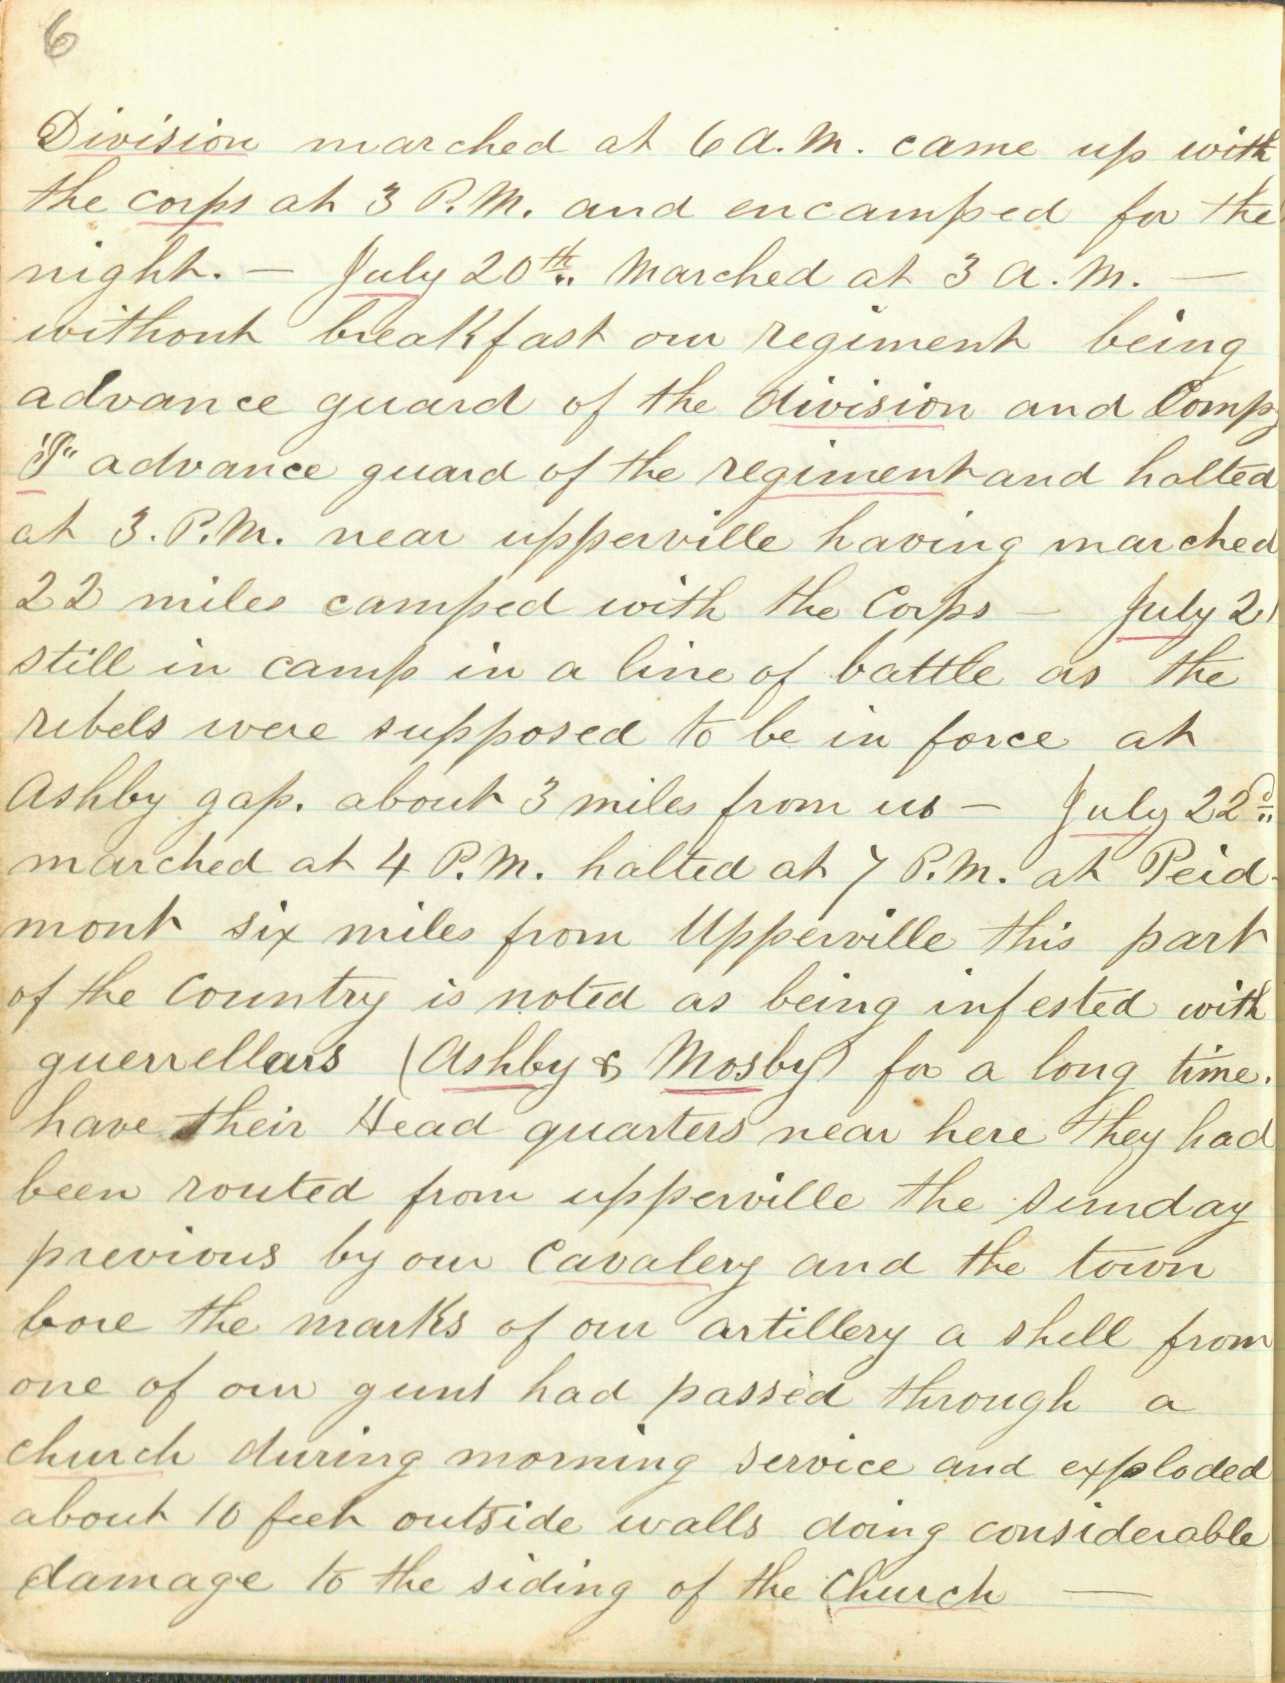 6
Division marched at 6 A.M. came up with
the corps at 3 P.M. and encamped for the
night. — July 20th.. Marched at 3 A.M. —
without breakfast our regiment being
advance guard of the division and Comp
advance guard of the regiment and halted
at 3. P.M. near upperville having marched
22 miles camped with the Corps — July 21
still in camp in a line of battle as the
rebels were supposed to be in force at
Ashby gap. about 3 miles from us — July 22d..
marched at 4 P.M. halted at 7 P.M. at Peid-
mont six miles from Upperville this part
of the Country is noted as being infested with
guerrellars (Ashby & Mosby) for a long time.
have their Head quarters near here they had
been routed from upperville the Sunday
previous by our Cavalery and the town
bore the marks of our artillery a shell from
one of our guns had passed through a
church during morning service and exploded
about 10 feet outside walls doing considerable
damage to the siding of the Church —